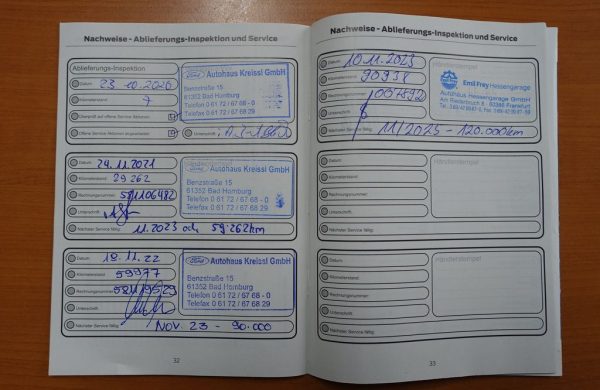 Nachweise - Ablieferungs-Inspektion und Service
Ablieferungs-Inspektion
Datum: 23 10.2020
Kilometerstand: 7
Überprüft auf offene Service-Aktionen
Offene Service-Aktionen abgearbeitet
Unterschrift:
Ford Autohaus Kreissl GmbH
Benzstraße 15
61352 Bad Homburg
Telefon 0 61 72 / 67 68 - 0
Telefax 0 61 72 / 67 68 29
Datum: 24.11.2021
Kilometerstand: 29 262
Rechnungsnummer: 581106482
Unterschrift:
Nächster Service fällig: 11.2023 od. 59.262km
Ford Autohaus Kreissl GmbH
Benzstraße 15
61352 Bad Homburg
Telefon 0 61 72 / 67 68 - 0
Telefax 0 61 72 / 67 68 29
Datum: 18.11.22
Kilometerstand: 59977
Rechnungsnummer: 581119529
Unterschrift:
Nächster Service fällig: NOV. 23 - 90.000
Ford Autohaus Kreissl GmbH
Benzstraße 15
61352 Bad Homburg
Telefon 0 61 72 / 67 68 - 0
Telefax 0 61 72 / 67 68 29
32
Nachweise - Ablieferungs-Inspektion und Service
Datum: 10.11.2023
Kilometerstand: 90938
Rechnungsnummer: 1007892
Unterschrift:
Nächster Service fällig: 11/2025 - 120.000km
Händlerstempel
Emil Frey Hessengarage
Autohaus Hessengarage GmbH
Am Riederbruch 8 · 60386 Frankfurt
Datum:
Kilometerstand:
Rechnungsnummer:
Unterschrift:
Nächster Service fällig:
Händlerstempel
Datum:
Kilometerstand:
Rechnungsnummer:
Unterschrift:
Nächster Service fällig:
Händlerstempel
33